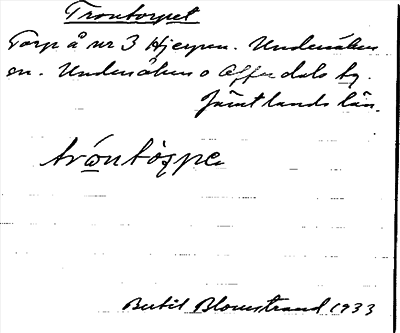 Trontorpet
Torp å nr 3 Hjerpen. Undersåkers
sn. Undersåkers o Offerdals tg.
Jämtlands län.
tró̱ntòrpe
Bertil Blomstrand 1933